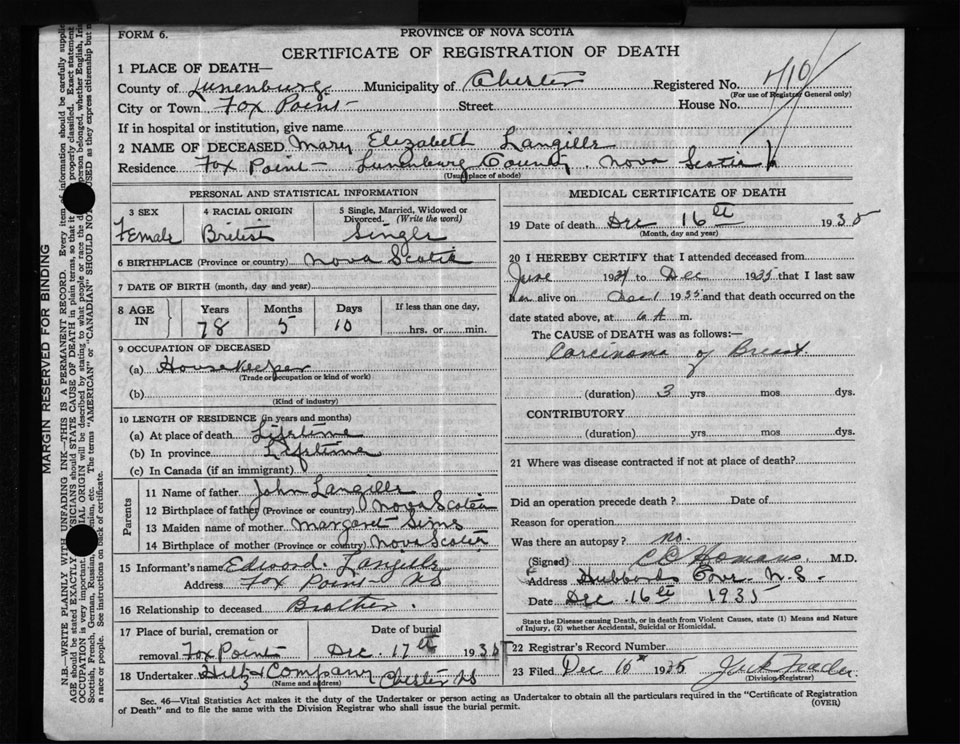 FORM 6.
PROVINCE OF NOVA SCOTIA
CERTIFICATE OF REGISTRATION OF DEATH
1 PLACE OF DEATH—
County of Lunenburg Municipality of Chester Registered No. 410
(For use of Registrar General only)
City or Town Fox Point Street House No.
If in hospital or institution, give name
2 NAME OF DECEASED Mary Elizabeth Langille
Residence Fox Point Lunenburg County, Nova Scotia
(Usual place of abode)
PERSONAL AND STATISTICAL INFORMATION
3 SEX 4 RACIAL ORIGIN 5 Single, Married, Widowed or
Divorced. (Write the word)
Female British Single
6 BIRTHPLACE (Province or country) Nova Scotia
7 DATE OF BIRTH (month, day and year)
8 AGE Years Months Days If less than one day,
IN 78 5 10 hrs. or min.
9 OCCUPATION OF DECEASED
(a) Housekeeper
(Trade or occupation or kind of work)
(b)
(Kind of industry)
10 LENGTH OF RESIDENCE (in years and months)
(a) At place of death Lifetime
(b) In province Lifetime
(c) In Canada (if an immigrant)
Parents
11 Name of father John Langille
12 Birthplace of father (Province or country) Nova Scotia
13 Maiden name of mother Margaret Sims
14 Birthplace of mother (Province or country) Nova Scotia
15 Informant's name Edward Langille
Address Fox Point NS
16 Relationship to deceased Brother.
17 Place of burial, cremation or Date of burial
removal Fox Point Dec. 17th 1935
18 Undertaker Hiltz Company Chester NS
(Name and address)
MEDICAL CERTIFICATE OF DEATH
19 Date of death Dec 16th 1935
(Month, day and year)
20 I HEREBY CERTIFY that I attended deceased from
June 1934 to Dec 1935 that I last saw
her alive on Dec 1 1935 and that death occurred on the
date stated above, at 6 A m.
The CAUSE of DEATH was as follows:—
Carcinoma of Breast.
(duration) 3 yrs mos dys.
CONTRIBUTORY
(duration) yrs mos dys.
21 Where was disease contracted if not at place of death?
Did an operation precede death? Date of
Reason for operation
Was there an autopsy? no.
(Signed) M.D.
Address Hubbards Cove. N.S.
Date Dec. 16th 1935
State the Disease causing Death, or in death from Violent Causes, state (1) Means and Nature
of Injury, (2) whether Accidental, Suicidal or Homicidal.
22 Registrar's Record Number
23 Filed Dec 1935
(Division Registrar)
Sec. 46—Vital Statistics Act makes it the duty of the Undertaker or person acting as Undertaker to obtain all the particulars required in the "Certificate of Registration
of Death" and to file the same with the Division Registrar who shall issue the burial permit. (OVER)
MARGIN RESERVED FOR BINDING
N.B.—WRITE PLAINLY WITH UNFADING INK—THIS IS A PERMANENT RECORD. Every item of information should be carefully supplied
AGE should be stated EXACTLY. should STATE CAUSE OF DEATH in plain terms, so that it properly classified. Exact statement
OCCUPATION is very important. ORIGIN will be described by stating to what people or race the person belonged, whether English, Irish
Scottish, French, German, Russian, etc. The terms "AMERICAN" or "CANADIAN" SHOULD NOT USED as they express citizenship but
a race or people. See instructions on back of certificate.